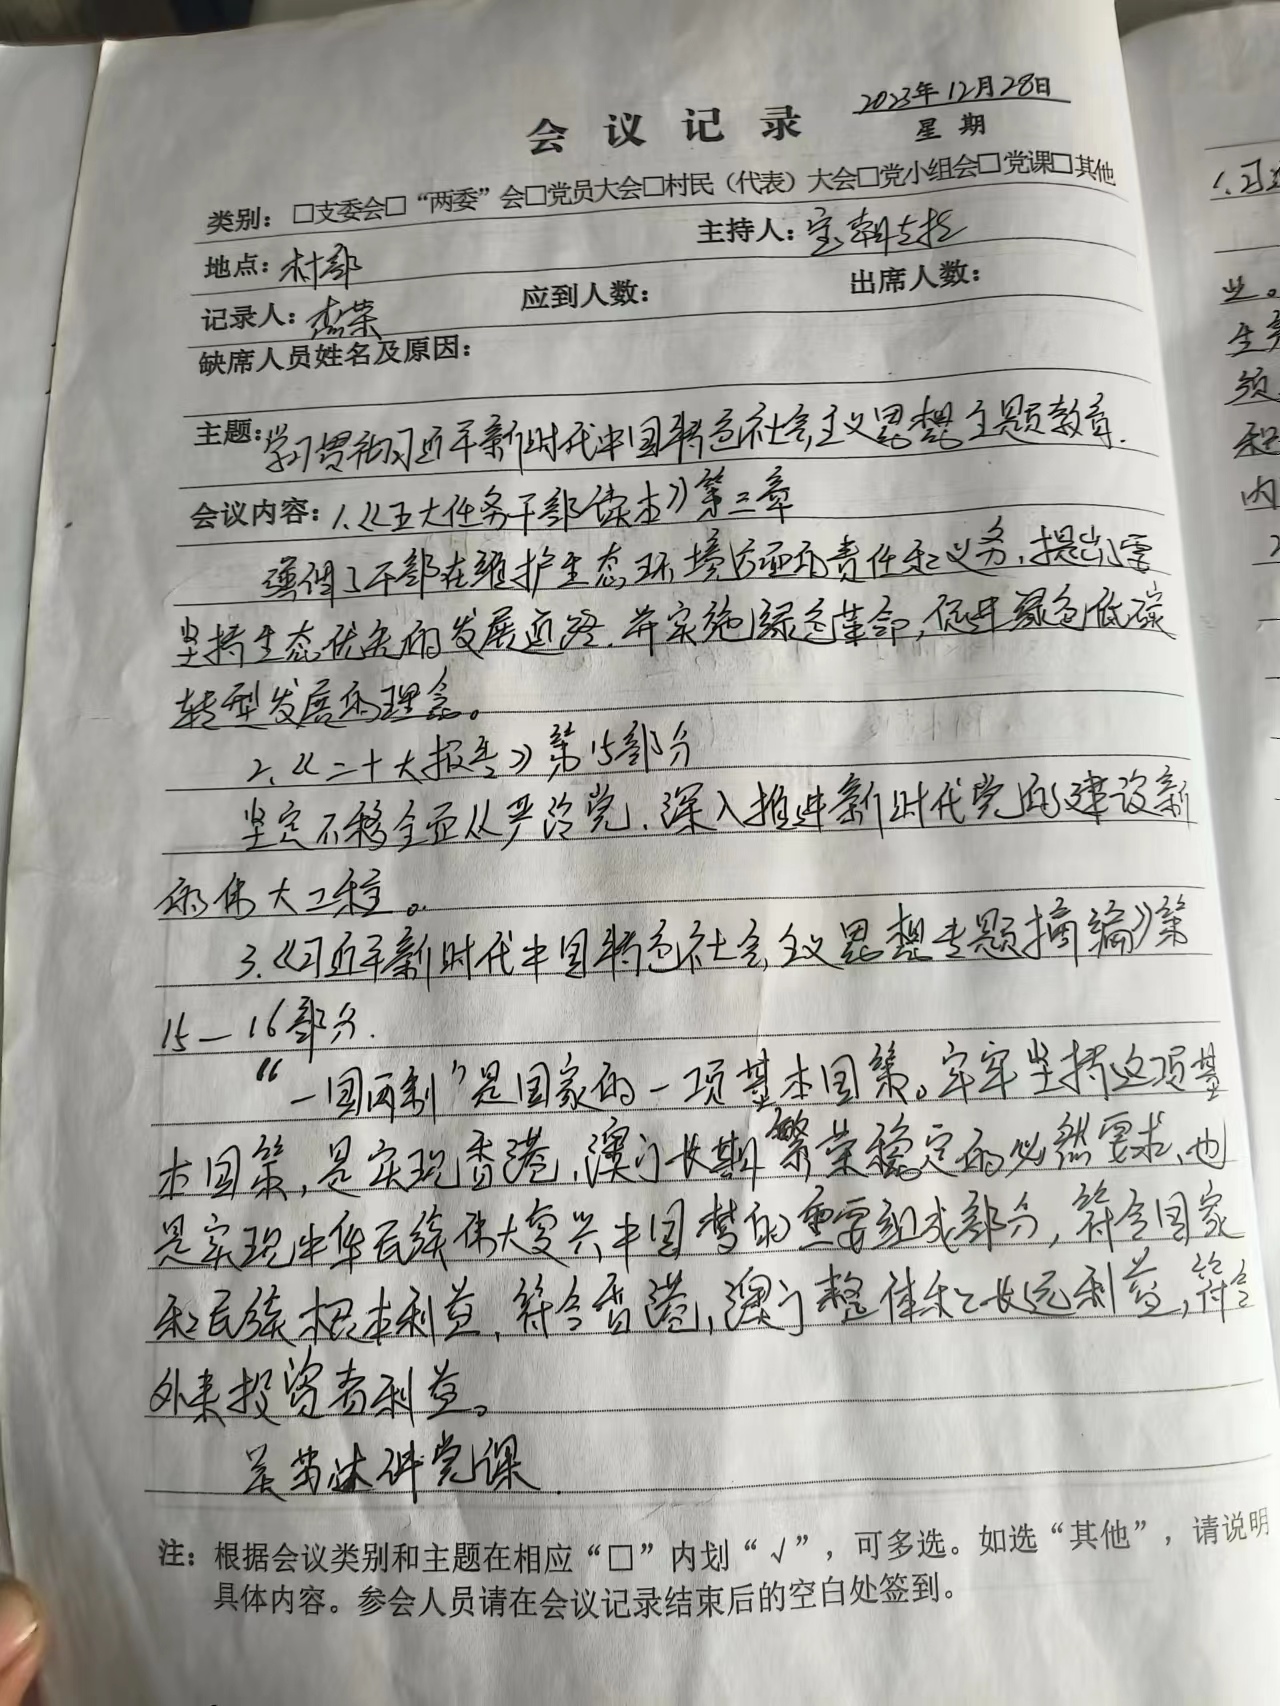 2023年12月28日
会议记录
星期
类别：□支委会□“两委”会□党员大会□村民（代表）大会□党小组会□党课□其他
地点：村部 主持人：宝朝
记录人：荣 应到人数： 出席人数：
缺席人员姓名及原因：
主题：学习贯彻习近平新时代中国特色社会主义思想主题教育.
会议内容：1.《五大任务干部读本》第三章
强调了干部在维护生态环境方面的责任和义务，提出了要
坚持生态优先的发展道路，并实施绿色革命，促进绿色低碳
转型发展的理念。
2.《二十大报告》第15部分
坚定不移全面从严治党，深入推进新时代党的建设新
的伟大工程。
3.《习近平新时代中国特色社会主义思想专题摘编》第
15—16部分.
“一国两制”是国家的一项基本国策。牢牢坚持这项基
本国策，是实现香港，澳门长期繁荣稳定的必然要求，也
是实现中华民族伟大复兴中国梦的重要组成部分，符合国家
和民族根本利益，符合香港，澳门整体和长远利益，符合
外来投资者利益。
讲党课.
注：根据会议类别和主题在相应“□”内划“√”，可多选。如选“其他”，请说明
具体内容。参会人员请在会议记录结束后的空白处签到。
1.习
业。
生
须
和
内
2